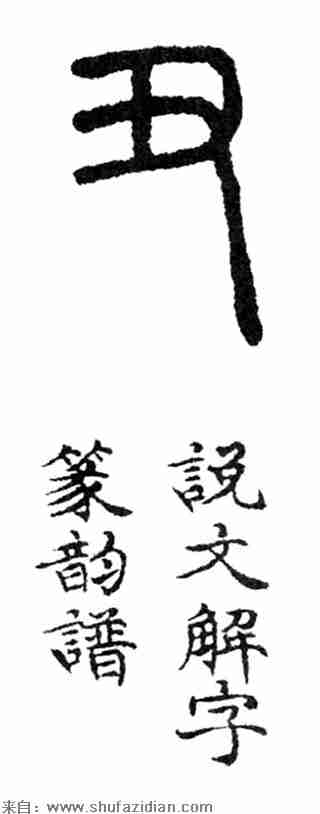 丑
説文解字
篆韵譜
来自：www.shufazidian.com